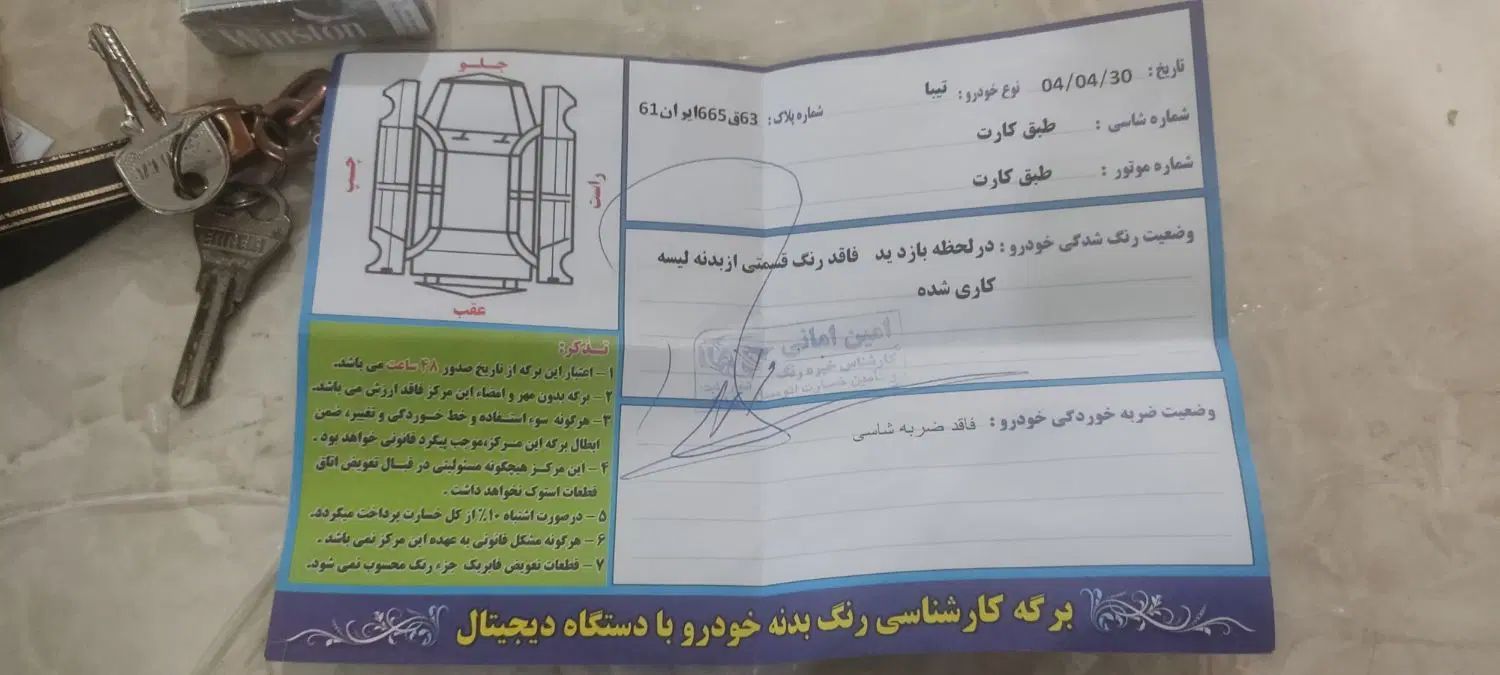 Winston
تاریخ : 04/04/30 نوع خودرو : تیبا شماره پلاک : 63ق665ایران61
شماره شاسی : طبق کارت
شماره موتور : طبق کارت
وضعیت رنگ شدگی خودرو : درلحظه بازدید فاقد رنگ قسمتی ازبدنه لیسه
کاری شده
امین امانی
کارشناس خبره رنگ
وضعیت ضربه خوردگی خودرو : فاقد ضربه شاسی
جلو
چپ
راست
عقب
تذکر:
۱- اعتبار این برگه از تاریخ صدور ۴۸ ساعت می باشد.
۲- برگه بدون مهر و امضاء این مرکز فاقد ارزش می باشد.
۳- هرگونه سوء استفاده و خط خوردگی و تغییر، ضمن
ابطال برگه این مرکز،موجب پیگرد قانونی خواهد بود .
۴- این مرکز هیچگونه مسئولیتی در قبال تعویض اتاق
قطعات استوک نخواهد داشت .
۵- درصورت اشتباه ۱۰٪ از کل خسارت پرداخت میگردد.
۶- هرگونه مشکل قانونی به عهده این مرکز نمی باشد .
۷- قطعات تعویض فابریک جزء رنگ محسوب نمی شود.
برگه کارشناسی رنگ بدنه خودرو با دستگاه دیجیتال